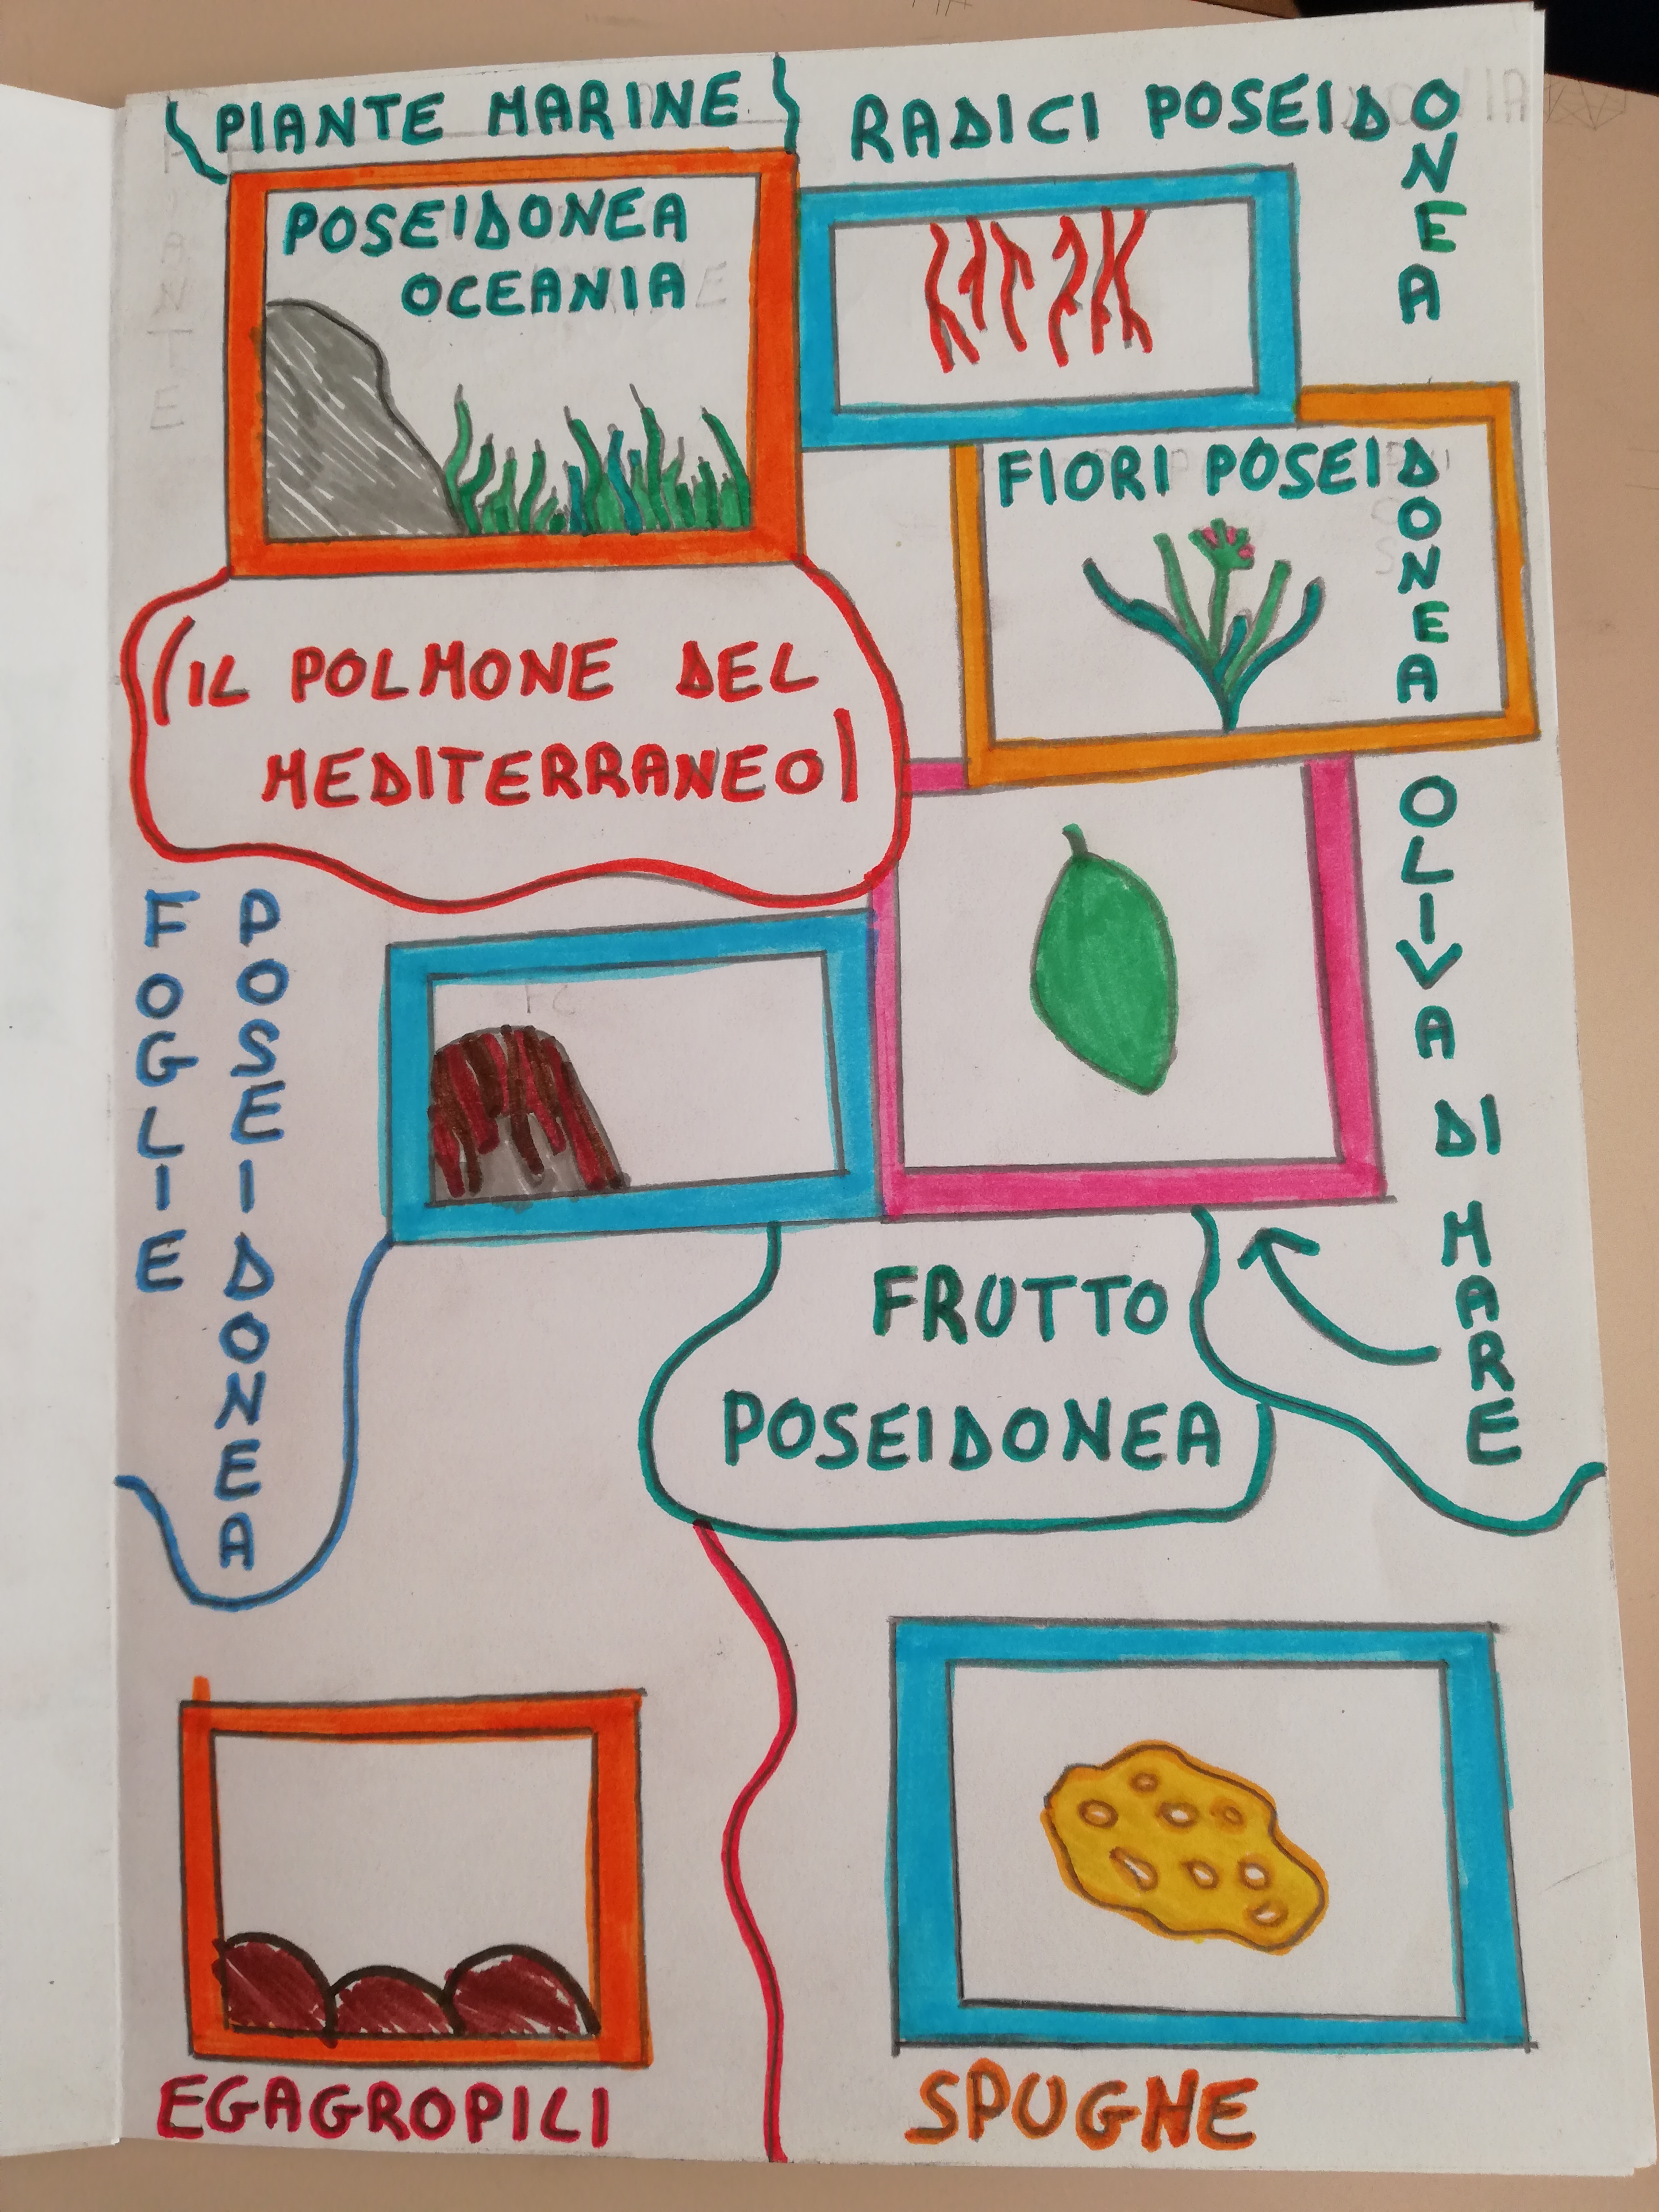 PIANTE MARINE
RADICI POSEIDONEA
POSEIDONEA
OCEANIA
FIORI POSEIDONEA
(IL POLMONE DEL
MEDITERRANEO)
OLIVA DI MARE
FOGLIE
POSEIDONEA
FRUTTO
POSEIDONEA
EGAGROPILI
SPUGNE